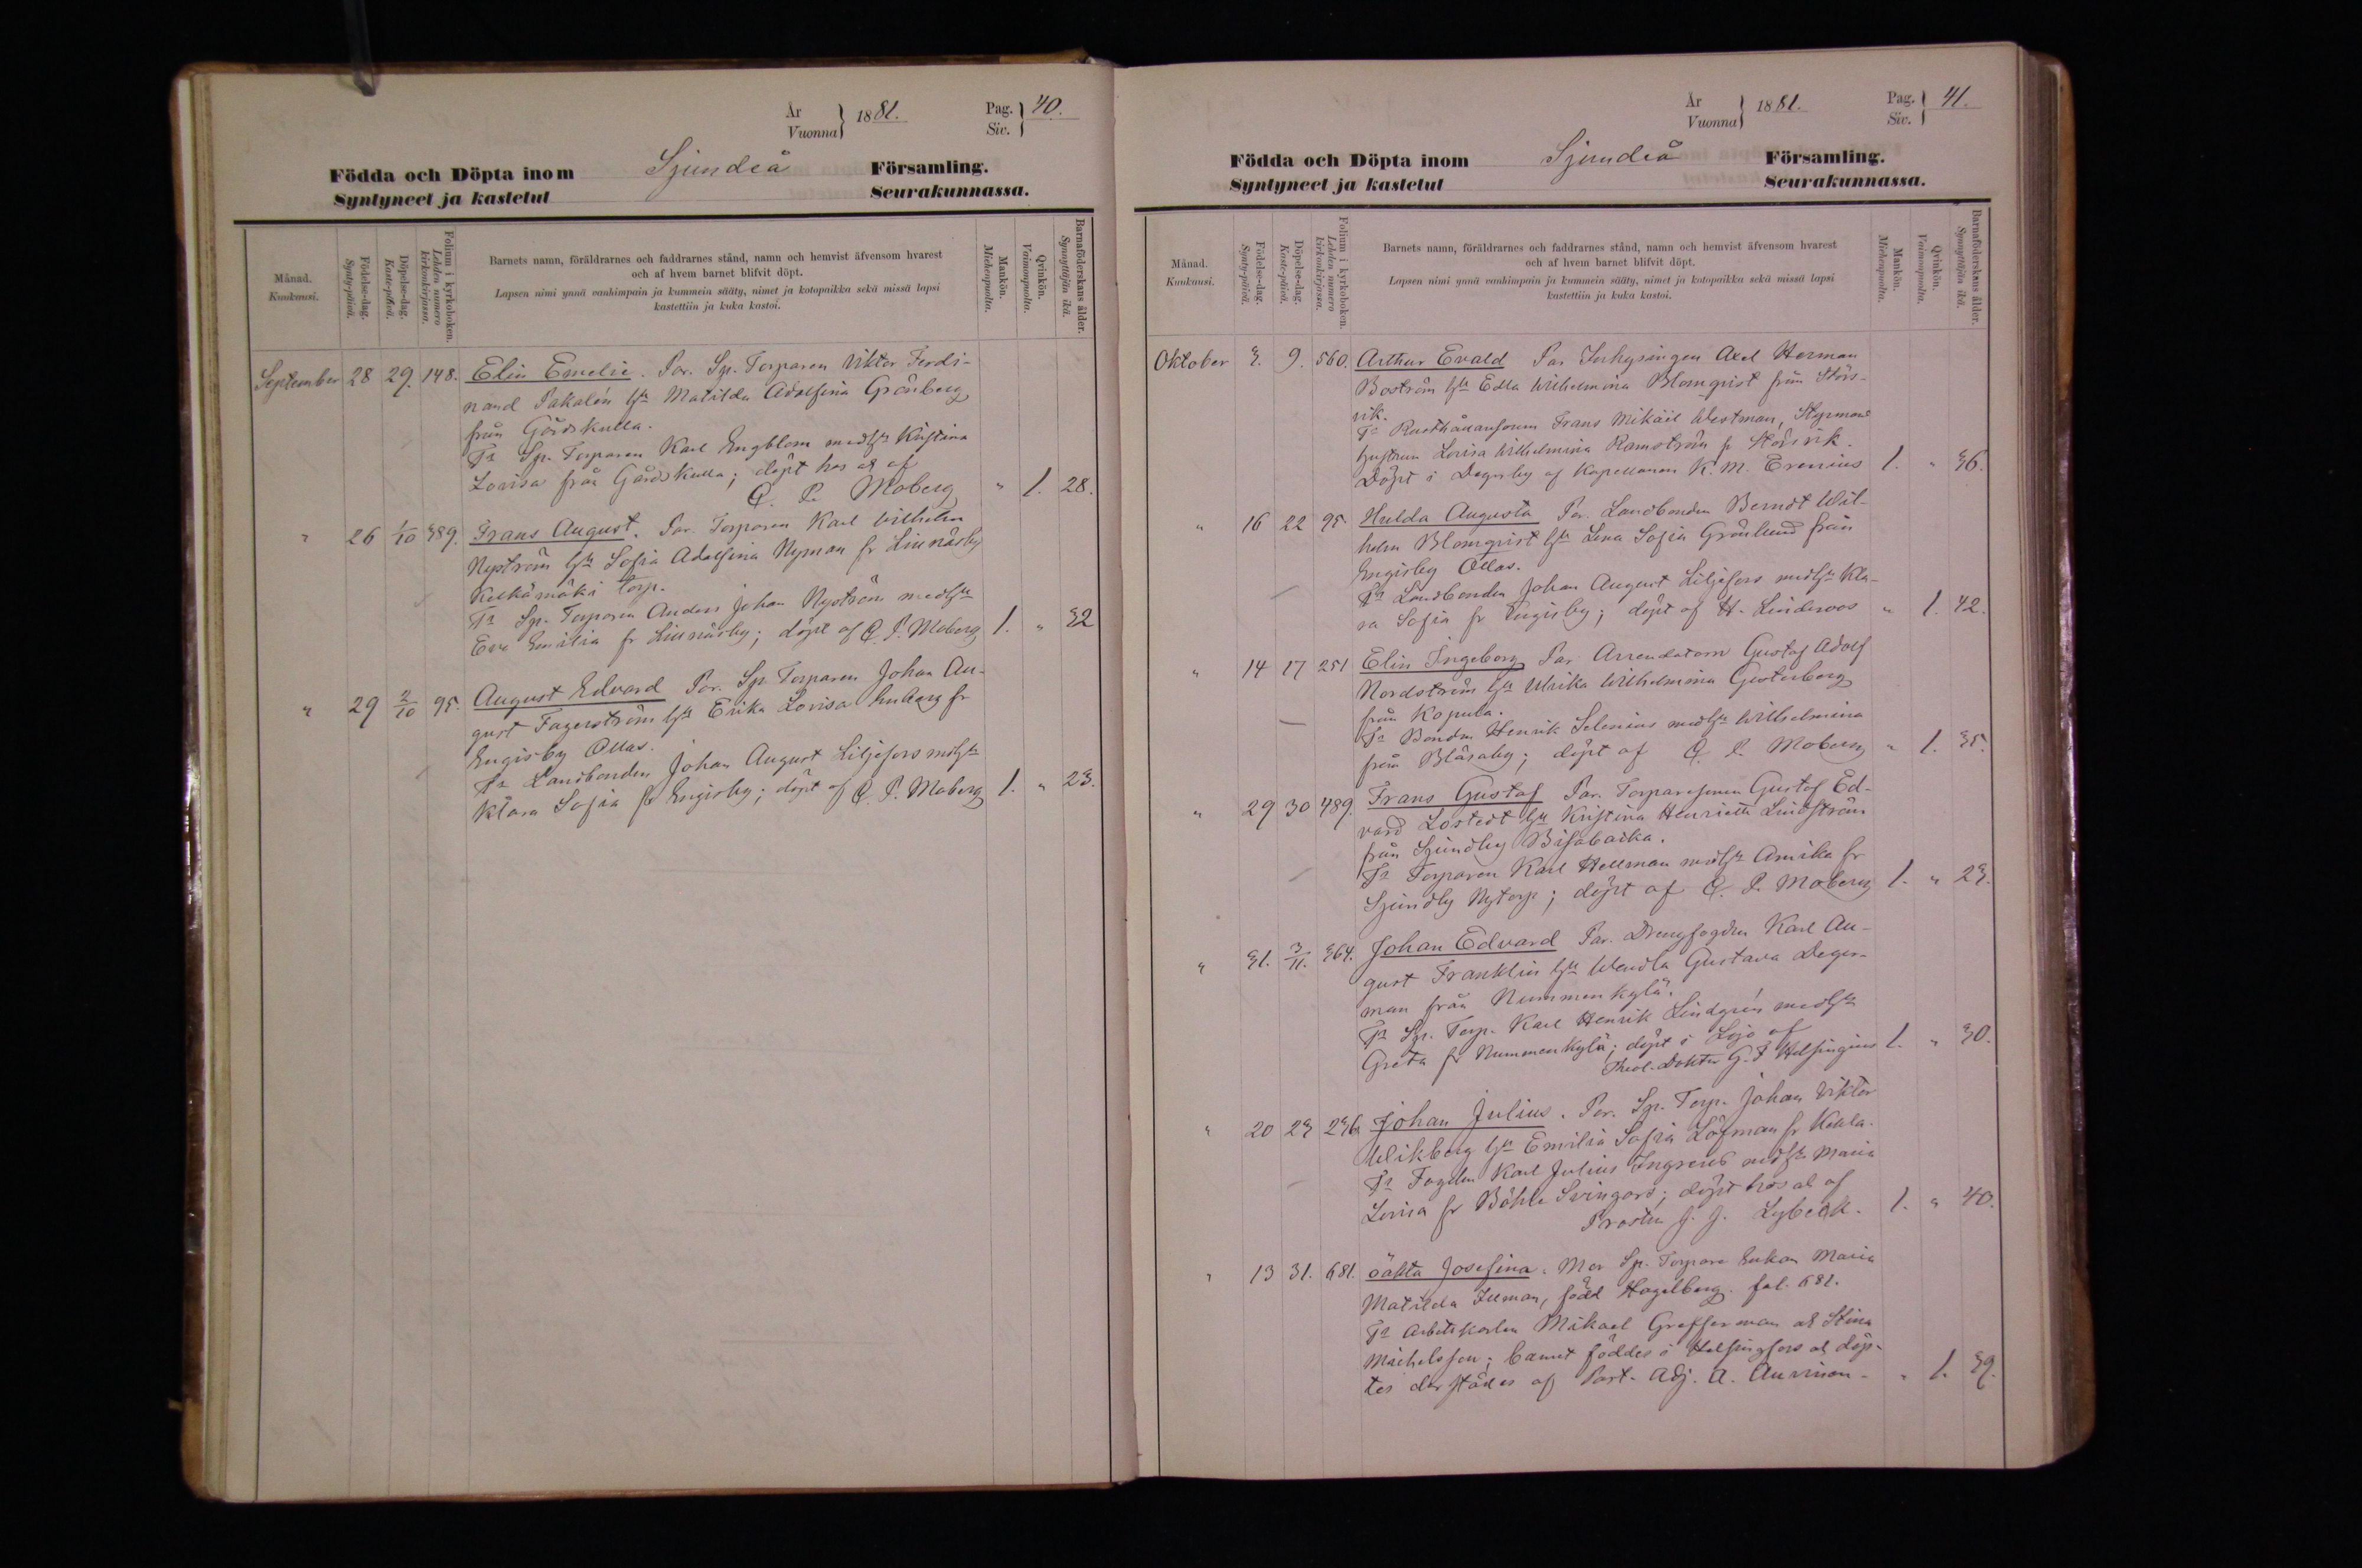 År
Vuonna } 1881.
Pag.
Siv. } 40.
Födda och Döpta inom Sjundeå Församling.
Syntyneet ja kastetut Seurakunnassa.
Månad.
Kuukausi.
Födelse-dag.
Synty-päivä.
Döpelse-dag.
Kaste-päivä.
Folium i kyrkoboken.
Lehden numero kirkonkirjassa.
Barnets namn, föräldrarnes och faddrarnes stånd, namn och hemvist äfvensom hvarest
och af hvem barnet blifvit döpt.
Lapsen nimi ynnä vanhimpain ja kummein sääty, nimet ja kotopaikka sekä missä lapsi
kastettiin ja kuka kastoi.
Mankön.
Miehenpuolta.
Qvinkön.
Vaimonpuolta.
Barnaföderskans ålder.
Synnyttäjän ikä.
September 28 29. 148. Elin Emelie. Par. Sp. Torparen Viktor Ferdi-
nand Pakalén hu Matilda Adolfina Grönberg
från Gårdskulla.
Fr Sp. Torparen Karl Engblom med hu Kristina
Lovisa från Gårdskulla; döpt hos af
Q. P. Moberg " 1. 28.
" 26 1/10 389. Frans August. Par. Torparen Karl Wilhelm
Nyström hu Sofia Adolfina Nyman fr Liunäsby
Kelkämäki torp.
Fr Sp. Torparen Anders Johan Nyström med hu
Eva Emilia fr Liunäsby; döpt af Q. P. Moberg 1. " 32
" 29 2/10 95. August Edvard Par. Sp. Torparen Johan Au-
gust Fagerström hu Erika Lovisa fr
Engisby Ollas.
Fr Landbonden Johan August Liljefors med hu
Klara Sofia fr Engisby; döpt af Q. P. Moberg 1. " 23.
År
Vuonna } 1881.
Pag.
Siv. } 41.
Födda och Döpta inom Sjundeå Församling.
Syntyneet ja kastetut Seurakunnassa.
Månad.
Kuukausi.
Födelse-dag.
Synty-päivä.
Döpelse-dag.
Kaste-päivä.
Folium i kyrkoboken.
Lehden numero kirkonkirjassa.
Barnets namn, föräldrarnes och faddrarnes stånd, namn och hemvist äfvensom hvarest
och af hvem barnet blifvit döpt.
Lapsen nimi ynnä vanhimpain ja kummein sääty, nimet ja kotopaikka sekä missä lapsi
kastettiin ja kuka kastoi.
Mankön.
Miehenpuolta.
Qvinkön.
Vaimonpuolta.
Barnaföderskans ålder.
Synnyttäjän ikä.
Oktober 3. 9. 560. Arthur Evald Par Inhysingen Axel Herman
Boström hu Edla Wilhelmina Blomqvist från Störs-
vik.
Fr Rusthållaresonen Frans Mikael Westman, Styrmans
hustrun Lovisa Wilhelmina Ramström fr Störsvik.
Döpt i Degerby af Kapellanen K. M. Erenius 1. " 36.
" 16 22 95. Hulda Augusta Par. Landbonden Berndt Wil-
helm Blomqvist hu Lena Sofia Grönlund från
Engisby Ollas.
Fr Landbonden Johan August Liljefors med hu Kla-
ra Sofia fr Engisby; döpt af H. Linderoos " 1. 42.
" 14 17 251 Elin Ingeborg Par Arrendatorn Gustaf Adolf
Nordström hu Ulrika Wilhelmina Gesterberg
från Kopula.
Fr Bonden Henrik Selenius med hu Wilhelmina
från Blåsaby; döpt af Q. P. Moberg " 1. 35.
" 29 30 489. Frans Gustaf Par. Torparesonen Gustaf Ed-
vard Löstedt hu Kristina Henrietta Lindström
från Sjundby Bisabacka.
Fr Torparen Karl Hellman med hu Amika fr
Sjundby Nytorp; döpt af Q. P. Moberg 1. " 23.
" 31. 3/11. 364. Johan Edvard Par. Drengfogden Karl Au-
gust Franklin hu Wendla Gustava Deger-
man från Nummenkylä.
Fr Sp. Torp. Karl Henrik Lindgrén med hu
Greta fr Nummenkylä; döpt i Lojo af
Theol. Doktor G. F Helsingius 1. " 30.
" 20 23 236 Johan Julius. Par. Sp. Torp. Johan Viktor
Wikberg hu Emilia Sofia Löfman fr Kaala.
Fr Fogden Karl Julius Ingerus med hu Maria
Lovisa fr Böhle Svingård; döpt hos af
Prosten J. J. Lybeck. 1. " 40.
" 13 31. 681. oäkta Josefina. Mor Sp. Torpare Enkan Maria
Matilda Illman, född Hagelberg. fol. 681.
Fr Arbetskarlen Mikael Grefferman och Stina
Michelsson; barnet föddes i Helsingfors och döp-
tes derstädes af Past. Adj. A. Aurinen. " 1. 39.